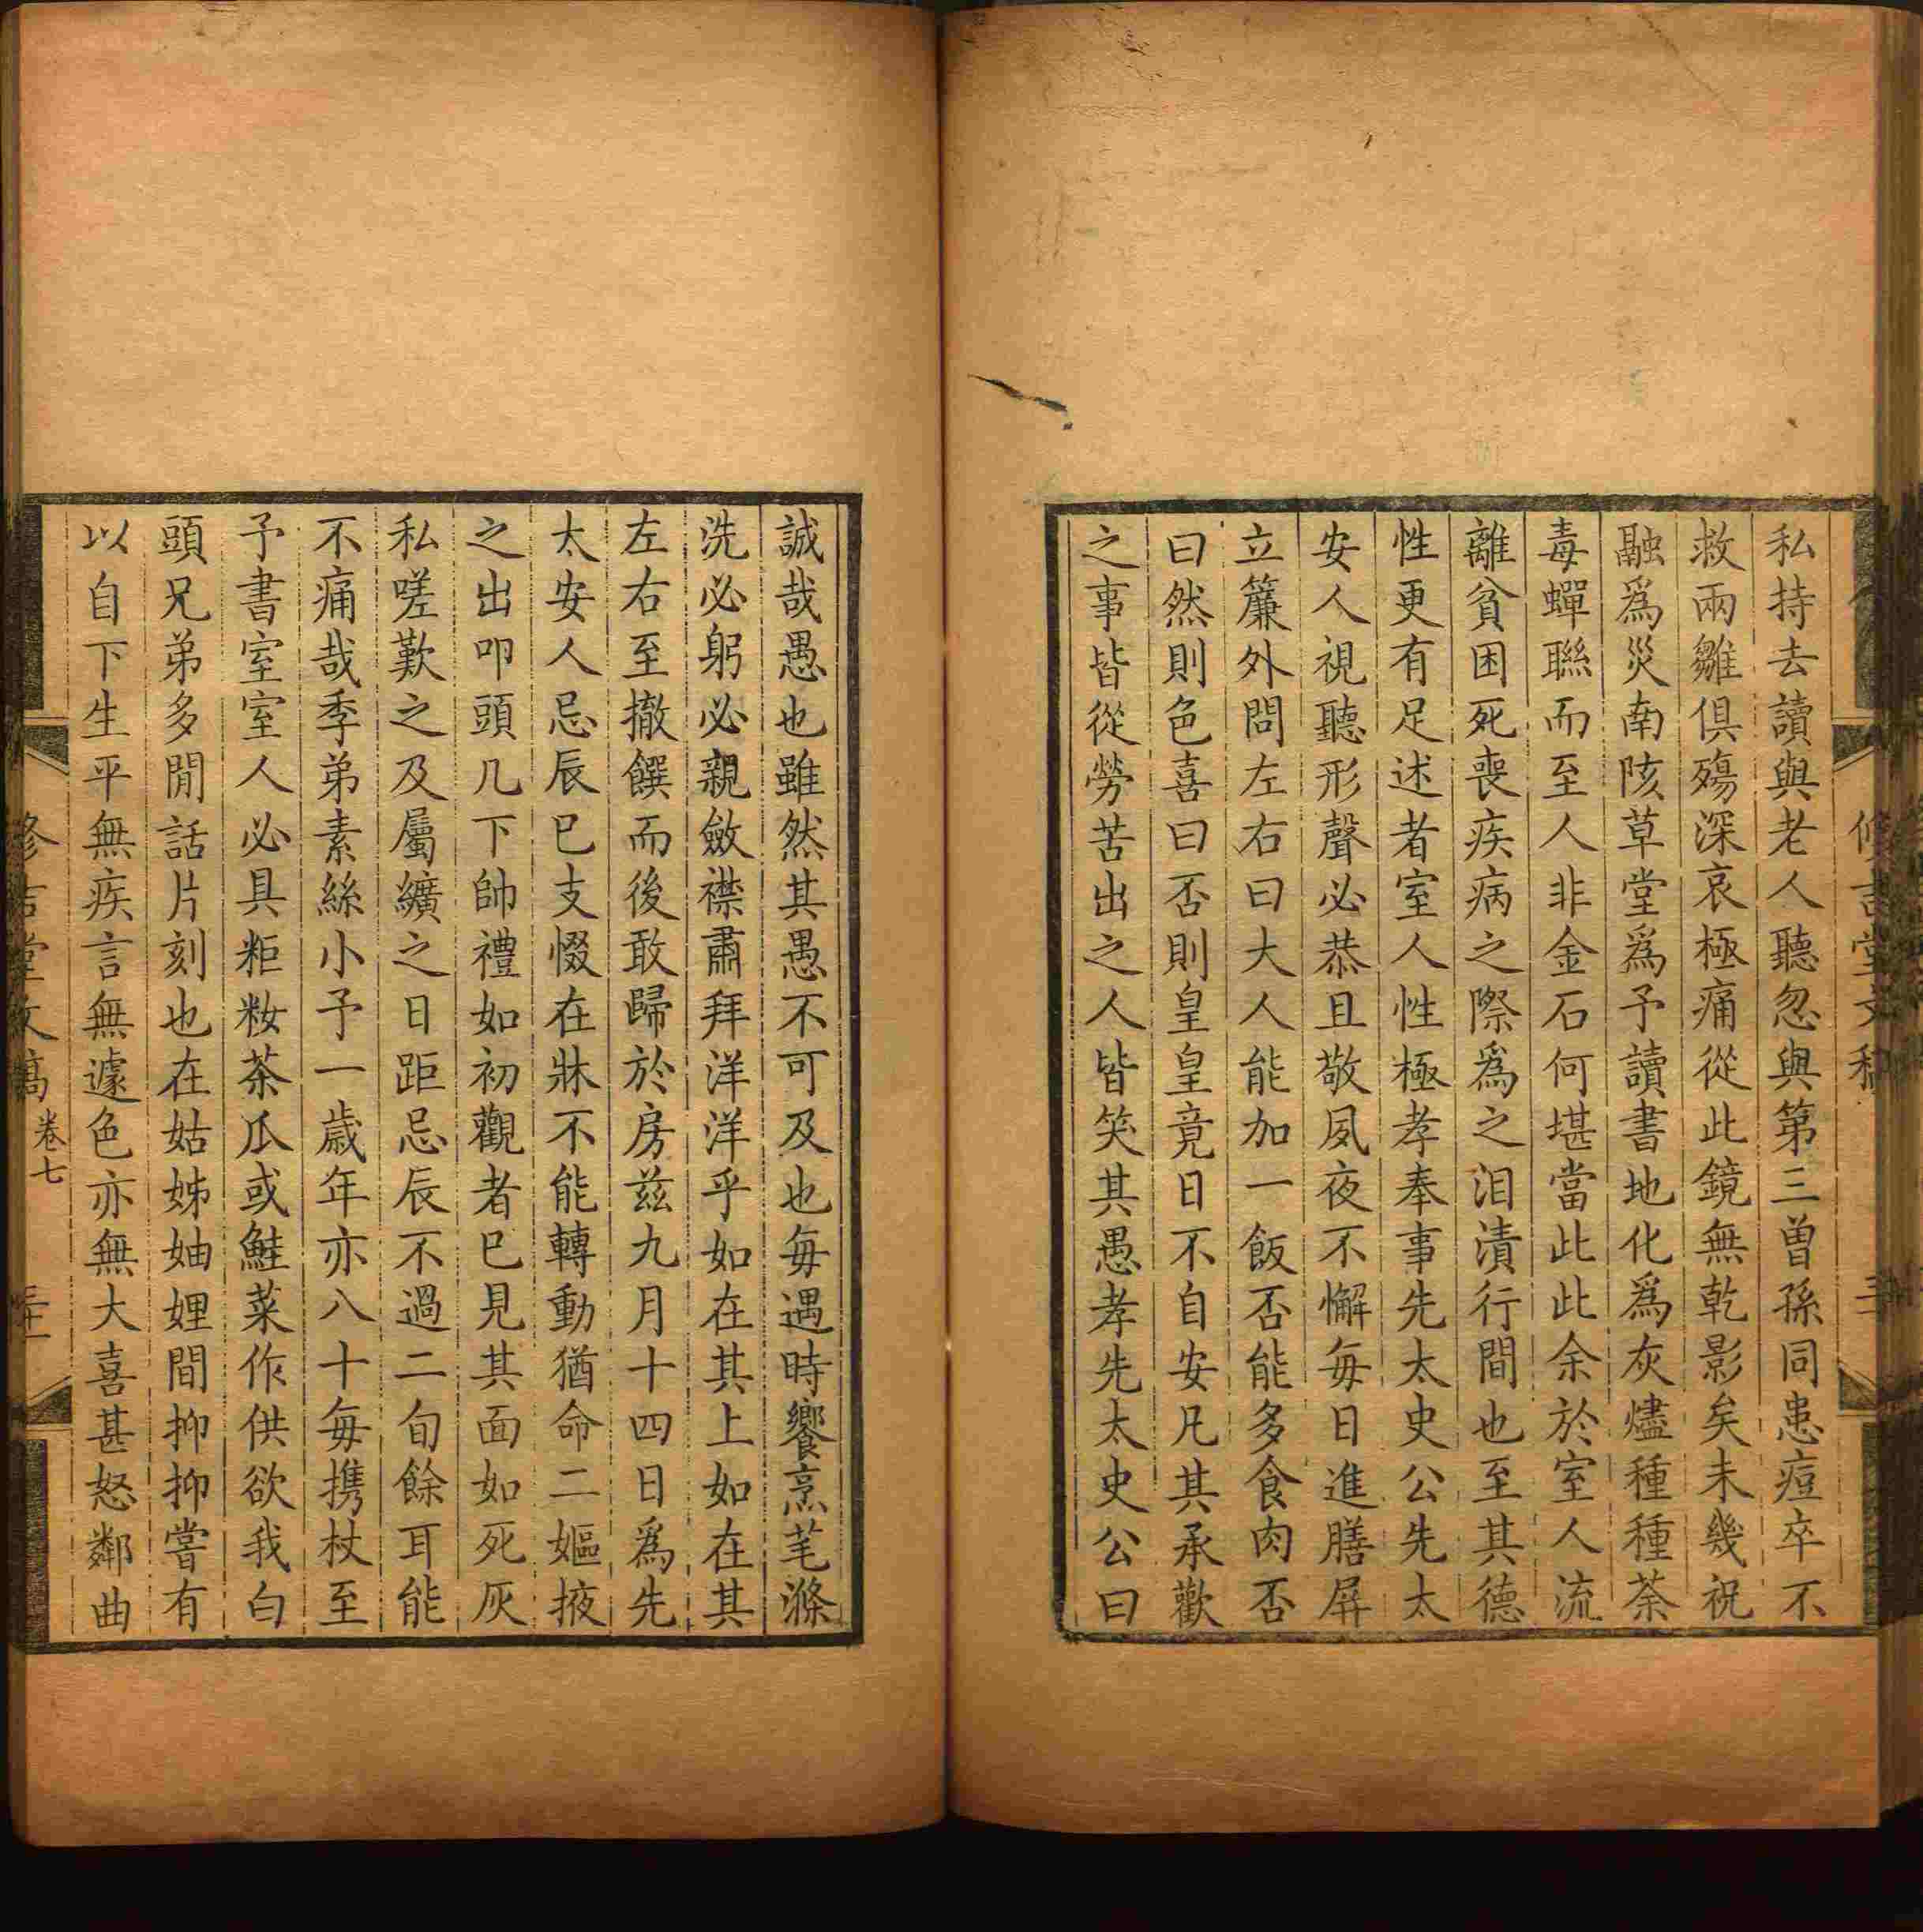 私持去讀與老人聽忽與第三曾孫同患痘卒不
救兩雛俱殤深哀極痛從此鏡無乾影矣未幾祝
融爲災南陔草堂爲予讀書地化爲灰燼種種荼
毒蟬聯而至人非金石何堪當此此余於室人流
離貧困死喪疾病之際爲之泪漬行間也至其德
性更有足述者室人性極孝奉事先太史公先太
安人視聽形聲必恭且敬夙夜不懈每日進膳屏
立簾外問左右曰大人能加一飯否能多食肉否
曰然則色喜曰否則皇皇竟日不自安凡其承歡
之事皆從勞苦出之人皆笑其愚孝先太史公曰
誠哉愚也雖然其愚不可及也每遇時饗烹芼滌
洗必躬必親斂襟肅拜洋洋乎如在其上如在其
左右至撤饌而後敢歸於房茲九月十四日爲先
太安人忌辰已支惙在牀不能轉動猶命二嫗掖
之出叩頭几下帥禮如初觀者已見其面如死灰
私嗟歎之及屬纊之日距忌辰不過二旬餘耳能
不痛哉季弟素絲小予一歲年亦八十每携杖至
予書室室人必具粔籹茶瓜或鮭菜作供欲我白
頭兄弟多閒話片刻也在姑姊妯娌間抑抑嘗有
以自下生平無疾言無遽色亦無大喜甚怒鄰曲
修吉堂文稿 卷七